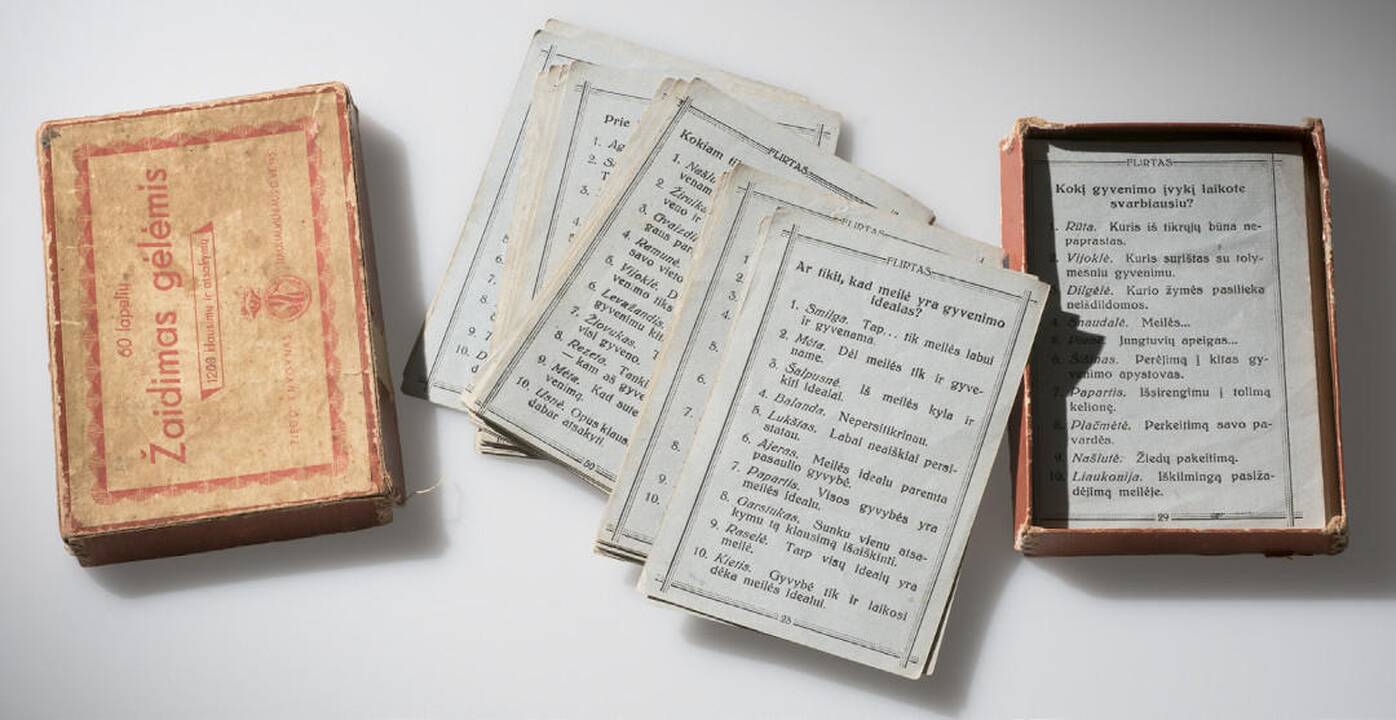 60 lapelių
Žaidimas gėlėmis
1200 klausimų ir atsakymų
Prie
1. Ag
2. S
3.
6.
7.
8.
9. T
10. D
FLIRTAS
Kokiam ti
1. Našlu
venam
2. Žiruika
veno ir
3. Gvaizdi
gaus par
4. Ramunė.
savo vieto
5. Vijoklė. D
venimo tiks
6. Levandis.
gyvenimu kit
7. Žiovukas. T
visi gyveno.
8. Rezeta. Tanki
— kam aš gyve
9. Mėta. Kad sute
venimą.
10. Usnė. Opus klaus.
dabar atsakyti
50
FLIRTAS
1.
2.
3.
4.
6.
7.
8.
9.
10.
FLIRTAS
Ar tikit, kad meilė yra gyvenimo
idealas?
1. Smilga. Tap... tik meilės labui
ir gyvenama.
2. Mėta. Dėl meilės tik ir gyve-
name.
3. Šalpusnė. Iš meilės kyla ir
kiti idealai.
4. Balanda. Nepersitikrinau.
5. Lukštas. Labai neaiškiai persi-
statau.
6. Ajeras. Meilės idealu paremta
pasaulio gyvybė.
7. Papartis. Visos gyvybės yra
meilės idealu.
8. Garstukas. Sunku vienu atsa-
kymu tą klausimą išaiškinti.
9. Raselė. Tarp visų idealų yra
meilė.
10. Kietis. Gyvybė tik ir laikosi
dėka meilės idealui.
23
FLIRTAS
Kokį gyvenimo įvykį laikote
svarbiausiu?
1. Rūta. Kuris iš tikrųjų būna ne-
paprastas.
2. Vijoklė. Kuris surištas su toly-
mesniu gyvenimu.
3. Dilgėlė. Kurio žymės pasilieka
neišdildomos.
4. Snaudalė. Meilės...
Jungtuvių apeigas...
6. Perėjimą į kitas gy-
venimo apystovas.
7. Papartis. Išsirengimu į tolimą
kelionę.
8. Plačmėtė. Perkeitimą savo pa-
vardės.
9. Našlutė. Žiedų pakeitimą.
10. Liaukonija. Iškilmingą pasiža-
dėjimą meilėje.
29